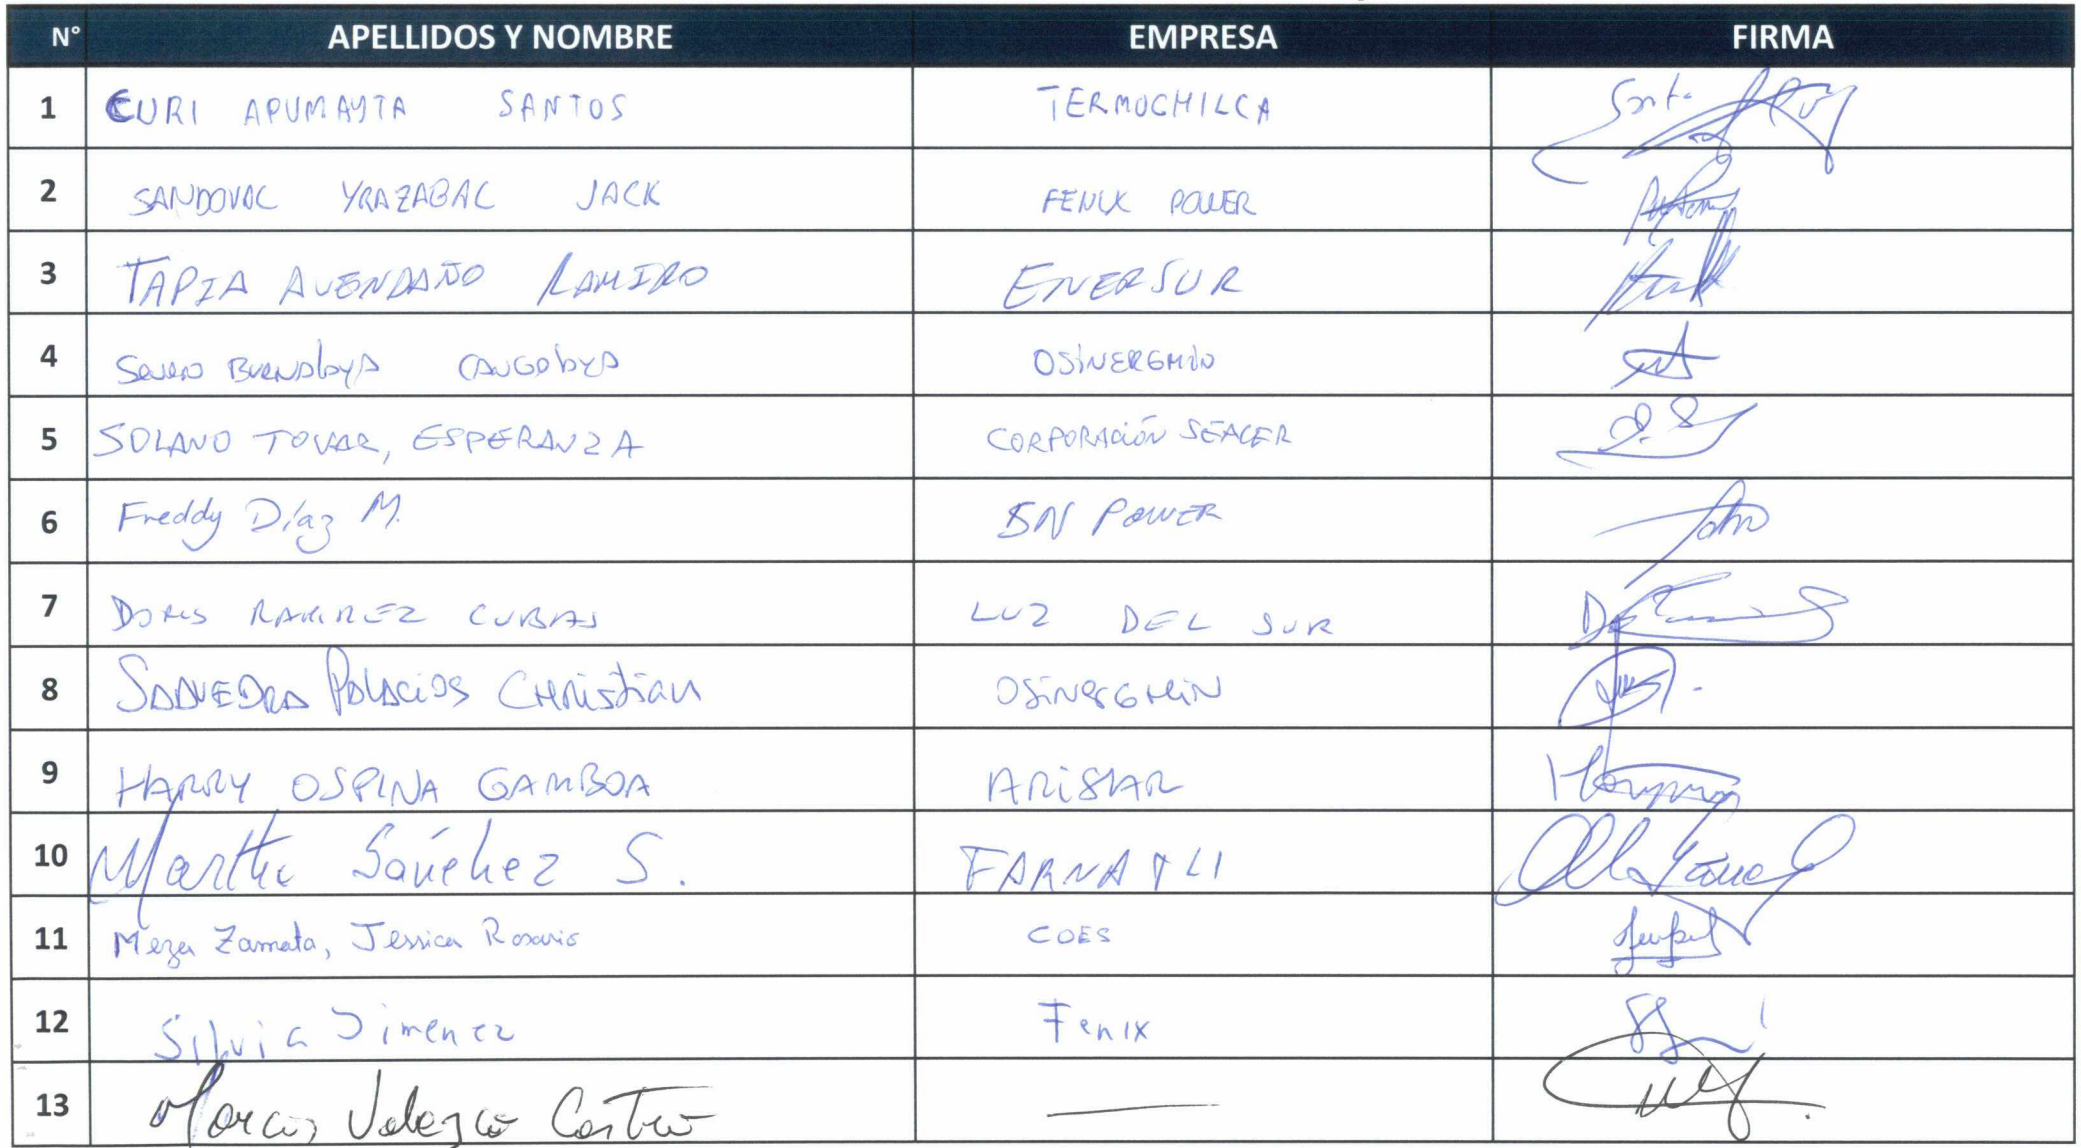 N° APELLIDOS Y NOMBRE EMPRESA FIRMA
1 CURI APUMAYTA SANTOS TERMOCHILCA
2 SANDOVAL YRAZABAL JACK FENIX POWER
3 TAPIA AVENDAÑO RAMIRO ENERSUR
4 OSINERGMIN
5 SOLANO TOVAR, ESPERANZA CORPORACIÓN SEACER
6 Freddy Díaz M. SN POWER
7 DORIS RAMIREZ CUBAS LUZ DEL SUR
8 SAAVEDRA PALACIOS CHRistian OSINERGMIN
9 HARRY OSPINA GAMBOA
10 Martha Sánchez S.
11 Meza Zamata, Jessica Rosario COES
12 Silvia Jimenez Fenix
13 Marcos Velezco Castro